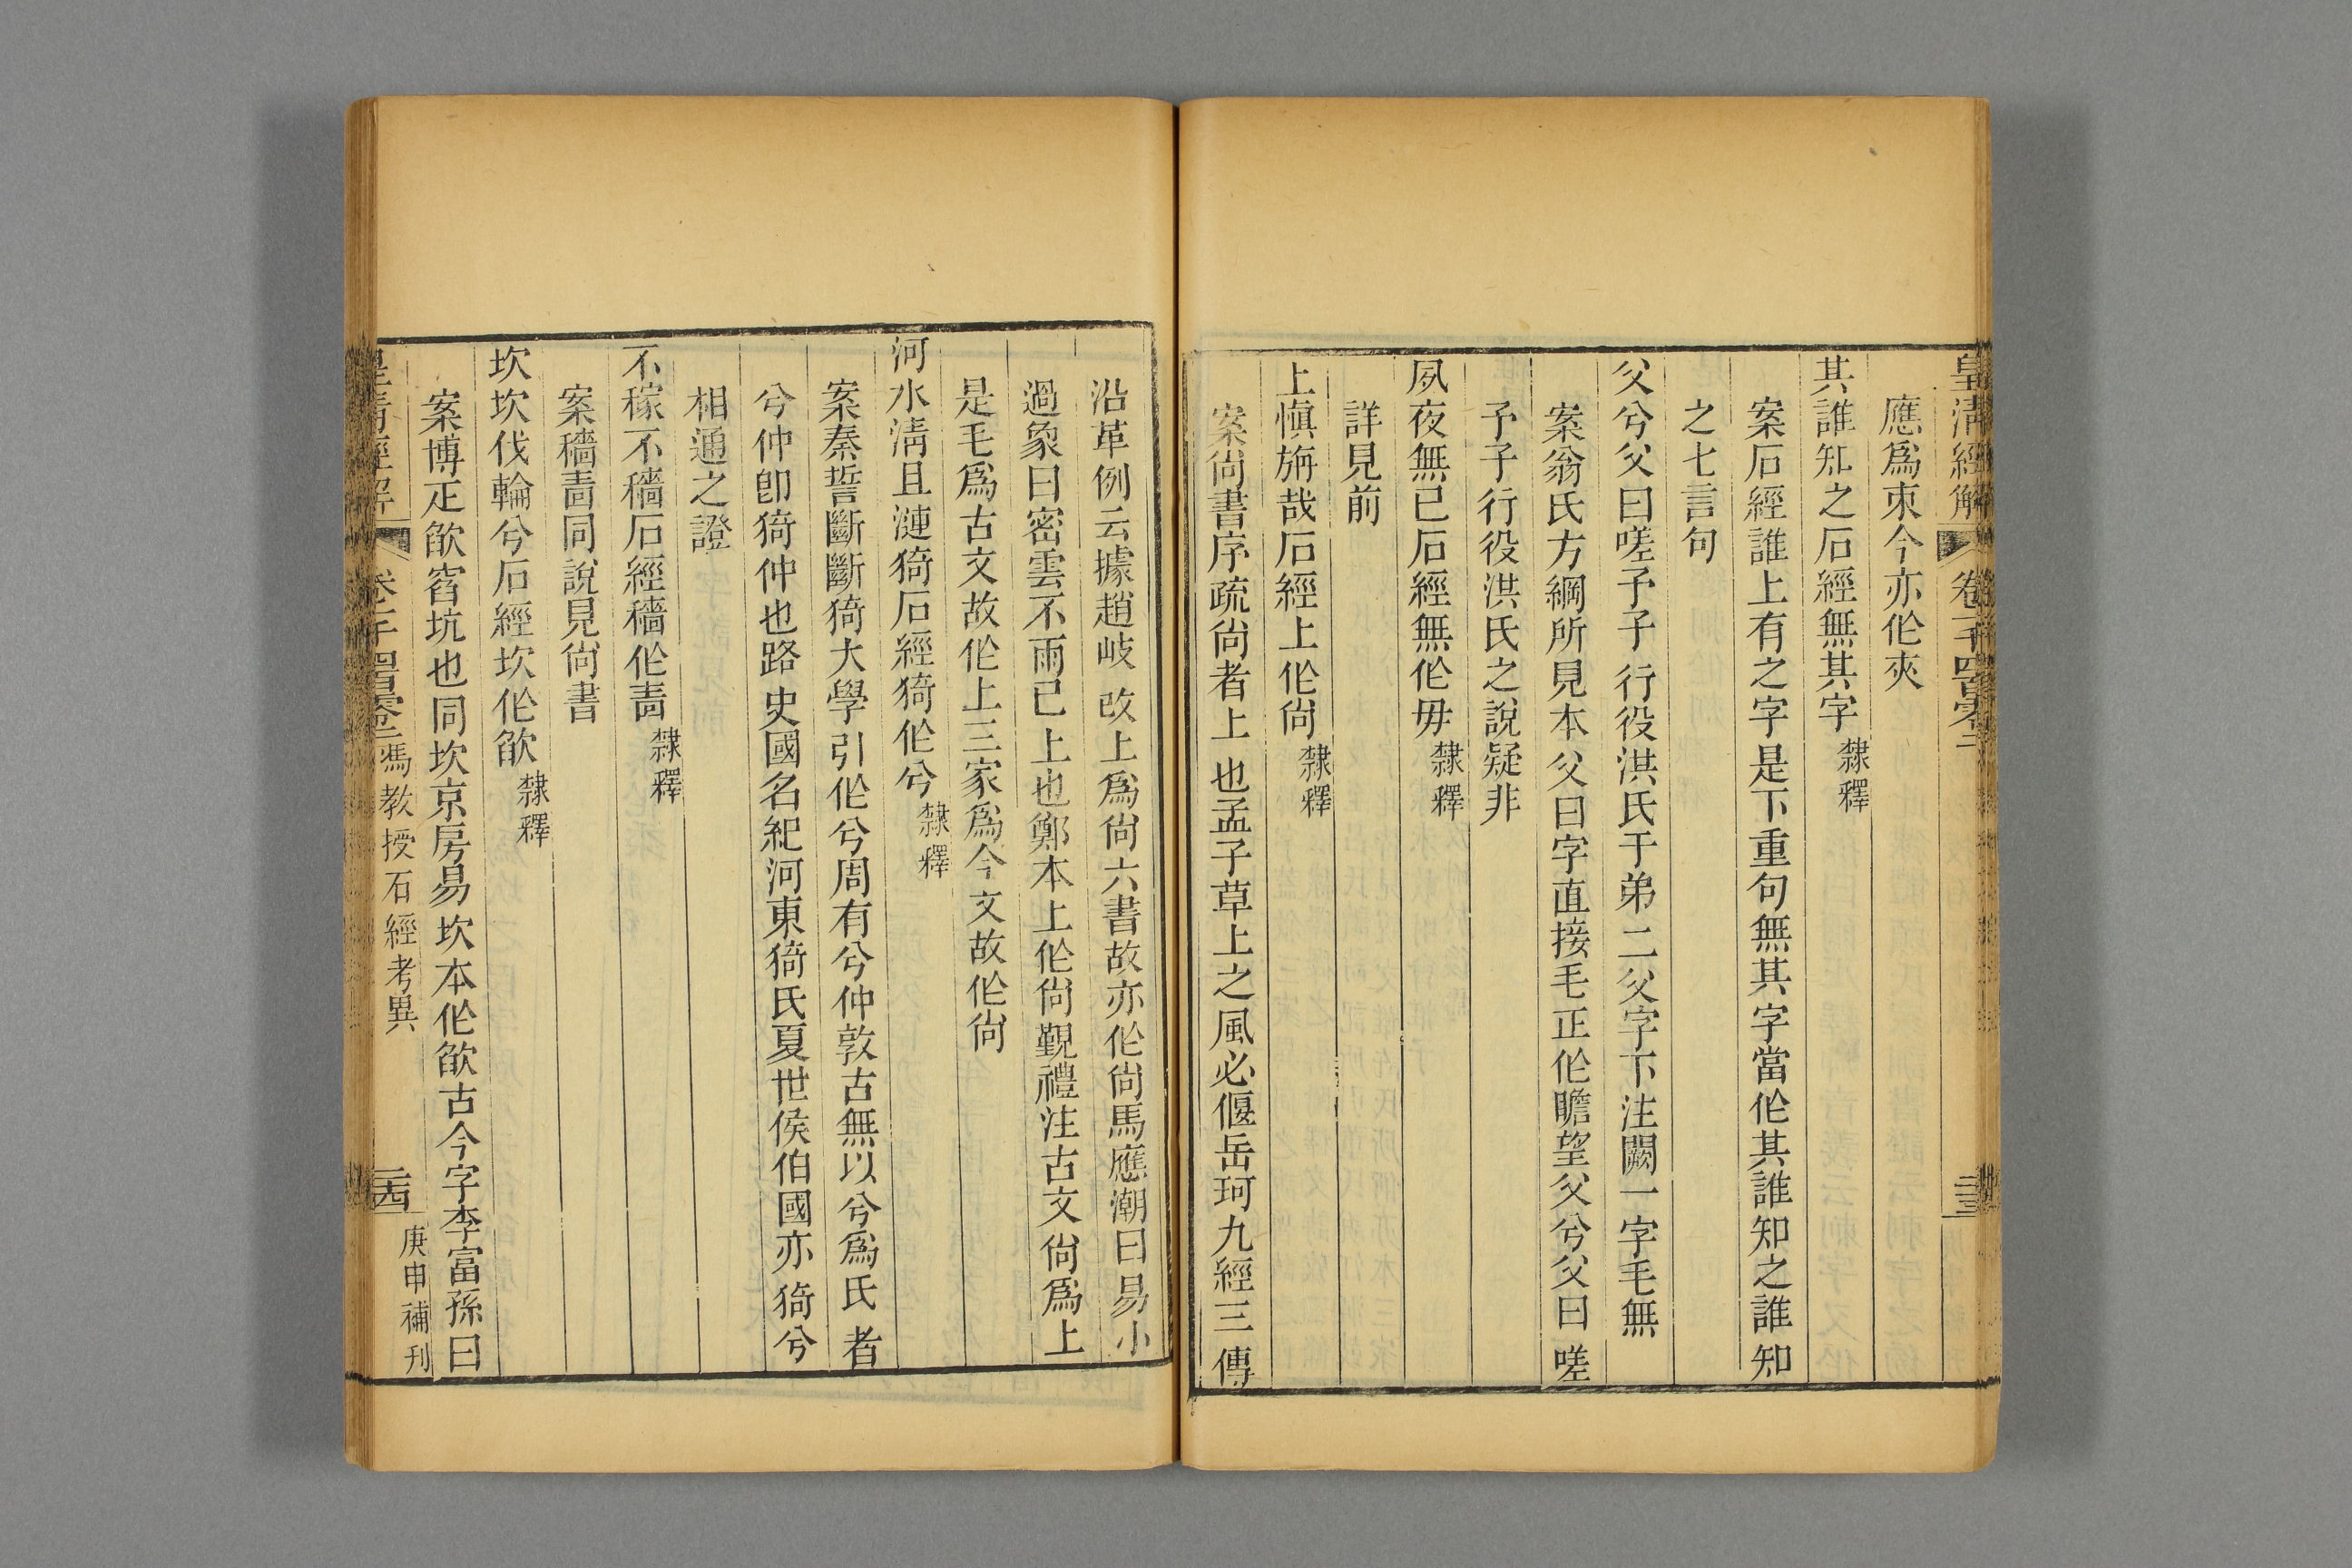 皇清經解 卷一千四百零二 二十三
應爲朿今亦伦夾
其誰知之石經無其字隸釋
案石經誰上有之字是下重句無其字當伦其誰知之誰知
之七言句
父兮父曰嗟予子行役洪氏于弟二父字下注闕一字毛無
案翁氏方綱所見本父曰字直接毛正伦瞻望父兮父曰嗟
予子行役洪氏之說疑非
夙夜無已石經無伦毋隸釋
詳見前
上愼旃哉石經上伦尙隸釋
案尙書序疏尙者上也孟子草上之風必偃岳珂九經三傳
沿革例云據趙岐改上爲尙六書故亦伦尙馬應潮曰易小
過象曰密雲不雨已上也鄭本上伦尙覲禮注古文尙爲上
是毛爲古文故伦上三家爲今文故伦尙
河水淸且漣猗石經猗伦兮隸釋
案秦誓斷斷猗大學引伦兮周有兮仲敦古無以兮爲氏者
兮仲卽猗仲也路史國名紀河東猗氏夏世侯伯國亦猗兮
相通之證
不稼不穡石經穡伦嗇隸釋
案穡嗇同說見尙書
坎坎伐輪兮石經坎伦欿隸釋
案博疋欿窞坑也同坎京房易坎本伦欿古今字李富孫曰
皇清經解 卷一千四百零二 馮敎授石經考異 二十四 庚申補刊